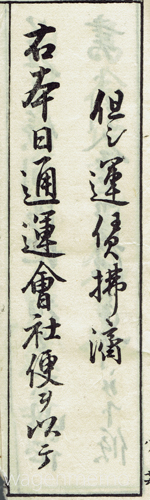 但シ運賃拂濟
右本日通運會社便ヲ以テ